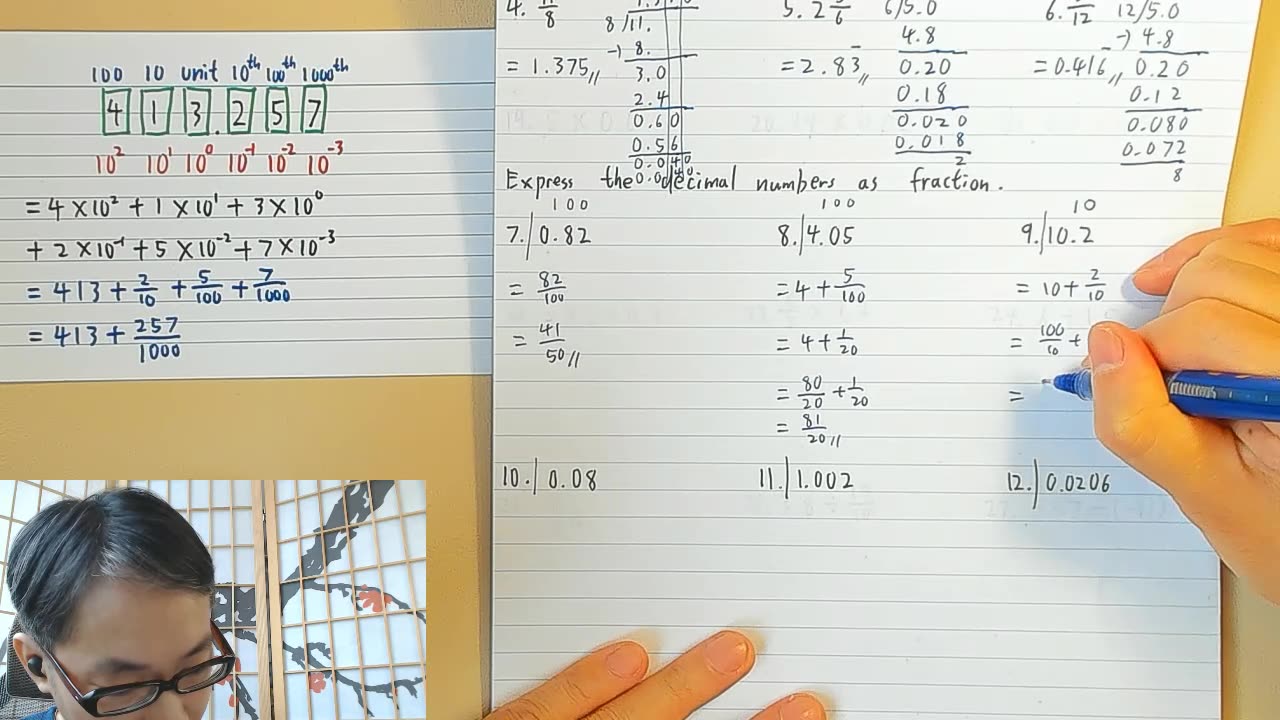 100 10 unit 10th 100th 1000th
4 1 3 . 2 5 7
10² 10¹ 10⁰ 10⁻¹ 10⁻² 10⁻³
= 4 × 10² + 1 × 10¹ + 3 × 10⁰
+ 2 × 10⁻¹ + 5 × 10⁻² + 7 × 10⁻³
= 413 + 2/10 + 5/100 + 7/1000
= 413 + 257/1000
4. /8
8/11.
-) 8.
= 1.375//
3.0
2.4
0.60
0.56
0.040
5. 2 5/6
6/5.0
4.8
= 2.83̄//
0.20
0.18
0.020
0.018
2
6. 5/12
12/5.0
-) 4.8
= 0.416̄//
0.20
0.12
0.080
0.072
8
Express the decimal numbers as fraction.
100
7. 0.82
= 82/100
= 41/50//
100
8. 4.05
= 4 + 5/100
= 4 + 1/20
= 80/20 + 1/20
= 81/20//
10
9. 10.2
= 10 + 2/10
= 100/10 +
=
10. 0.08
11. 1.002
12. 0.0206